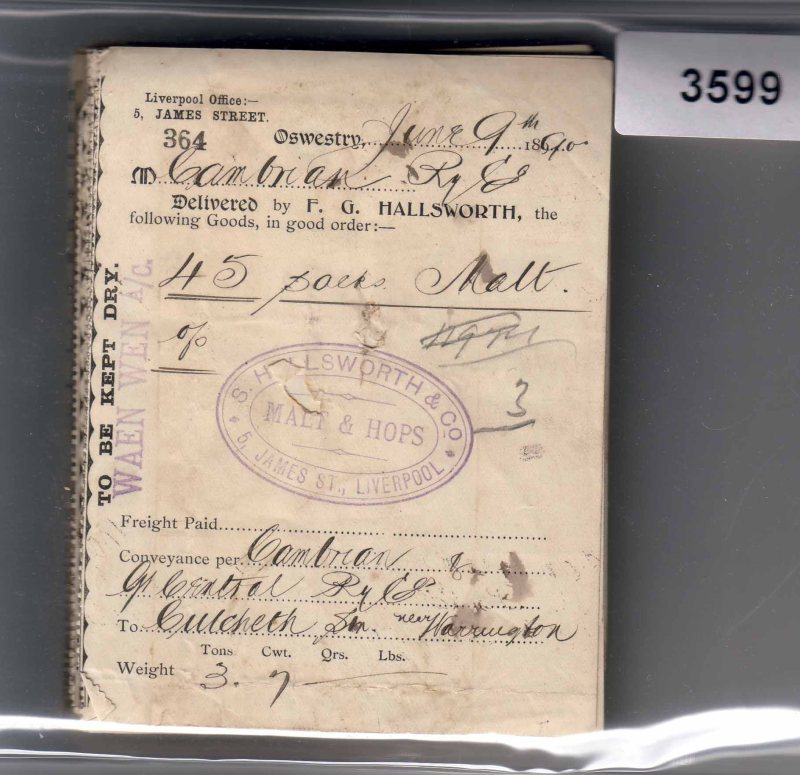 3599
Liverpool Office:—
5, JAMES STREET.
364 Oswestry, June 9th 18
M Cambrian Ry Co
Delivered by F. G. HALLSWORTH, the
following Goods, in good order:—
45 sacks Malt.
3
S. HALLSWORTH & CO.
MALT & HOPS
5, JAMES ST., LIVERPOOL
TO BE KEPT DRY.
WAEN WEN A/C.
Freight Paid
Conveyance per Cambrian &
Gt Central Ry Co
To Culcheth Stn. near Warrington
Tons Cwt. Qrs. Lbs.
Weight 3. 7